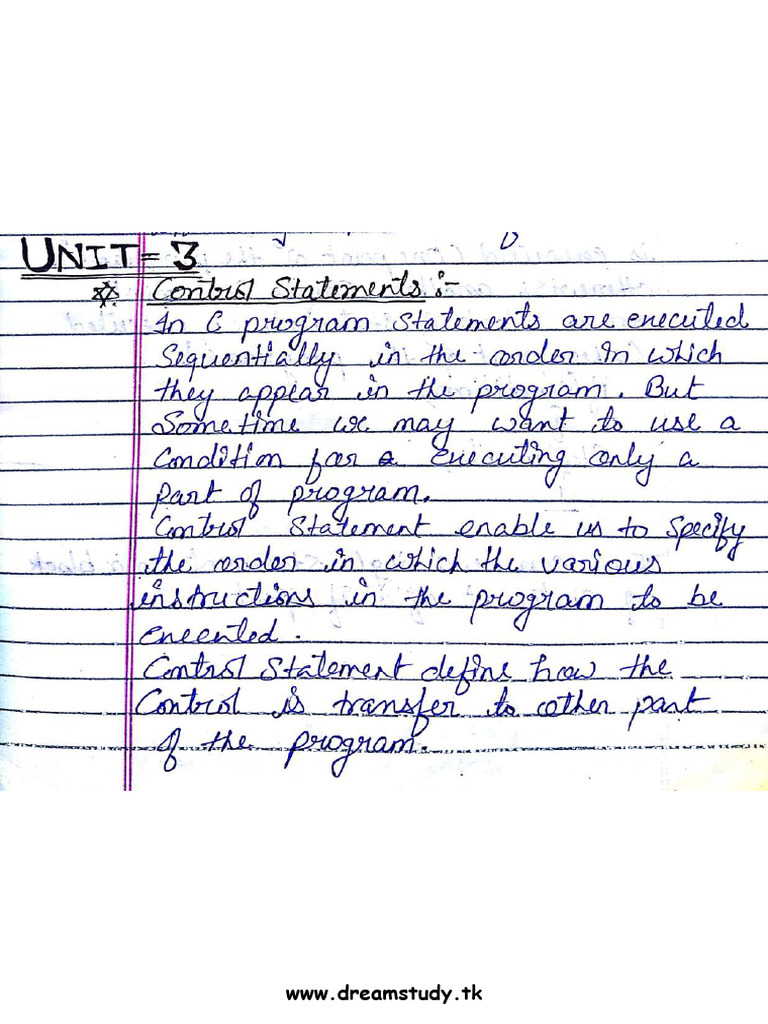 UNIT - 3
* Control Statements :-
In C program statements are executed
Sequentially in the order in which
they appear in the program. But
Sometime we may want to use a
Condition for a executing only a
part of program.
Control Statement enable us to specify
the order in which the various
instructions in the program to be
executed.
Control Statement define how the
Control is transfer to other part
of the program.
www.dreamstudy.tk